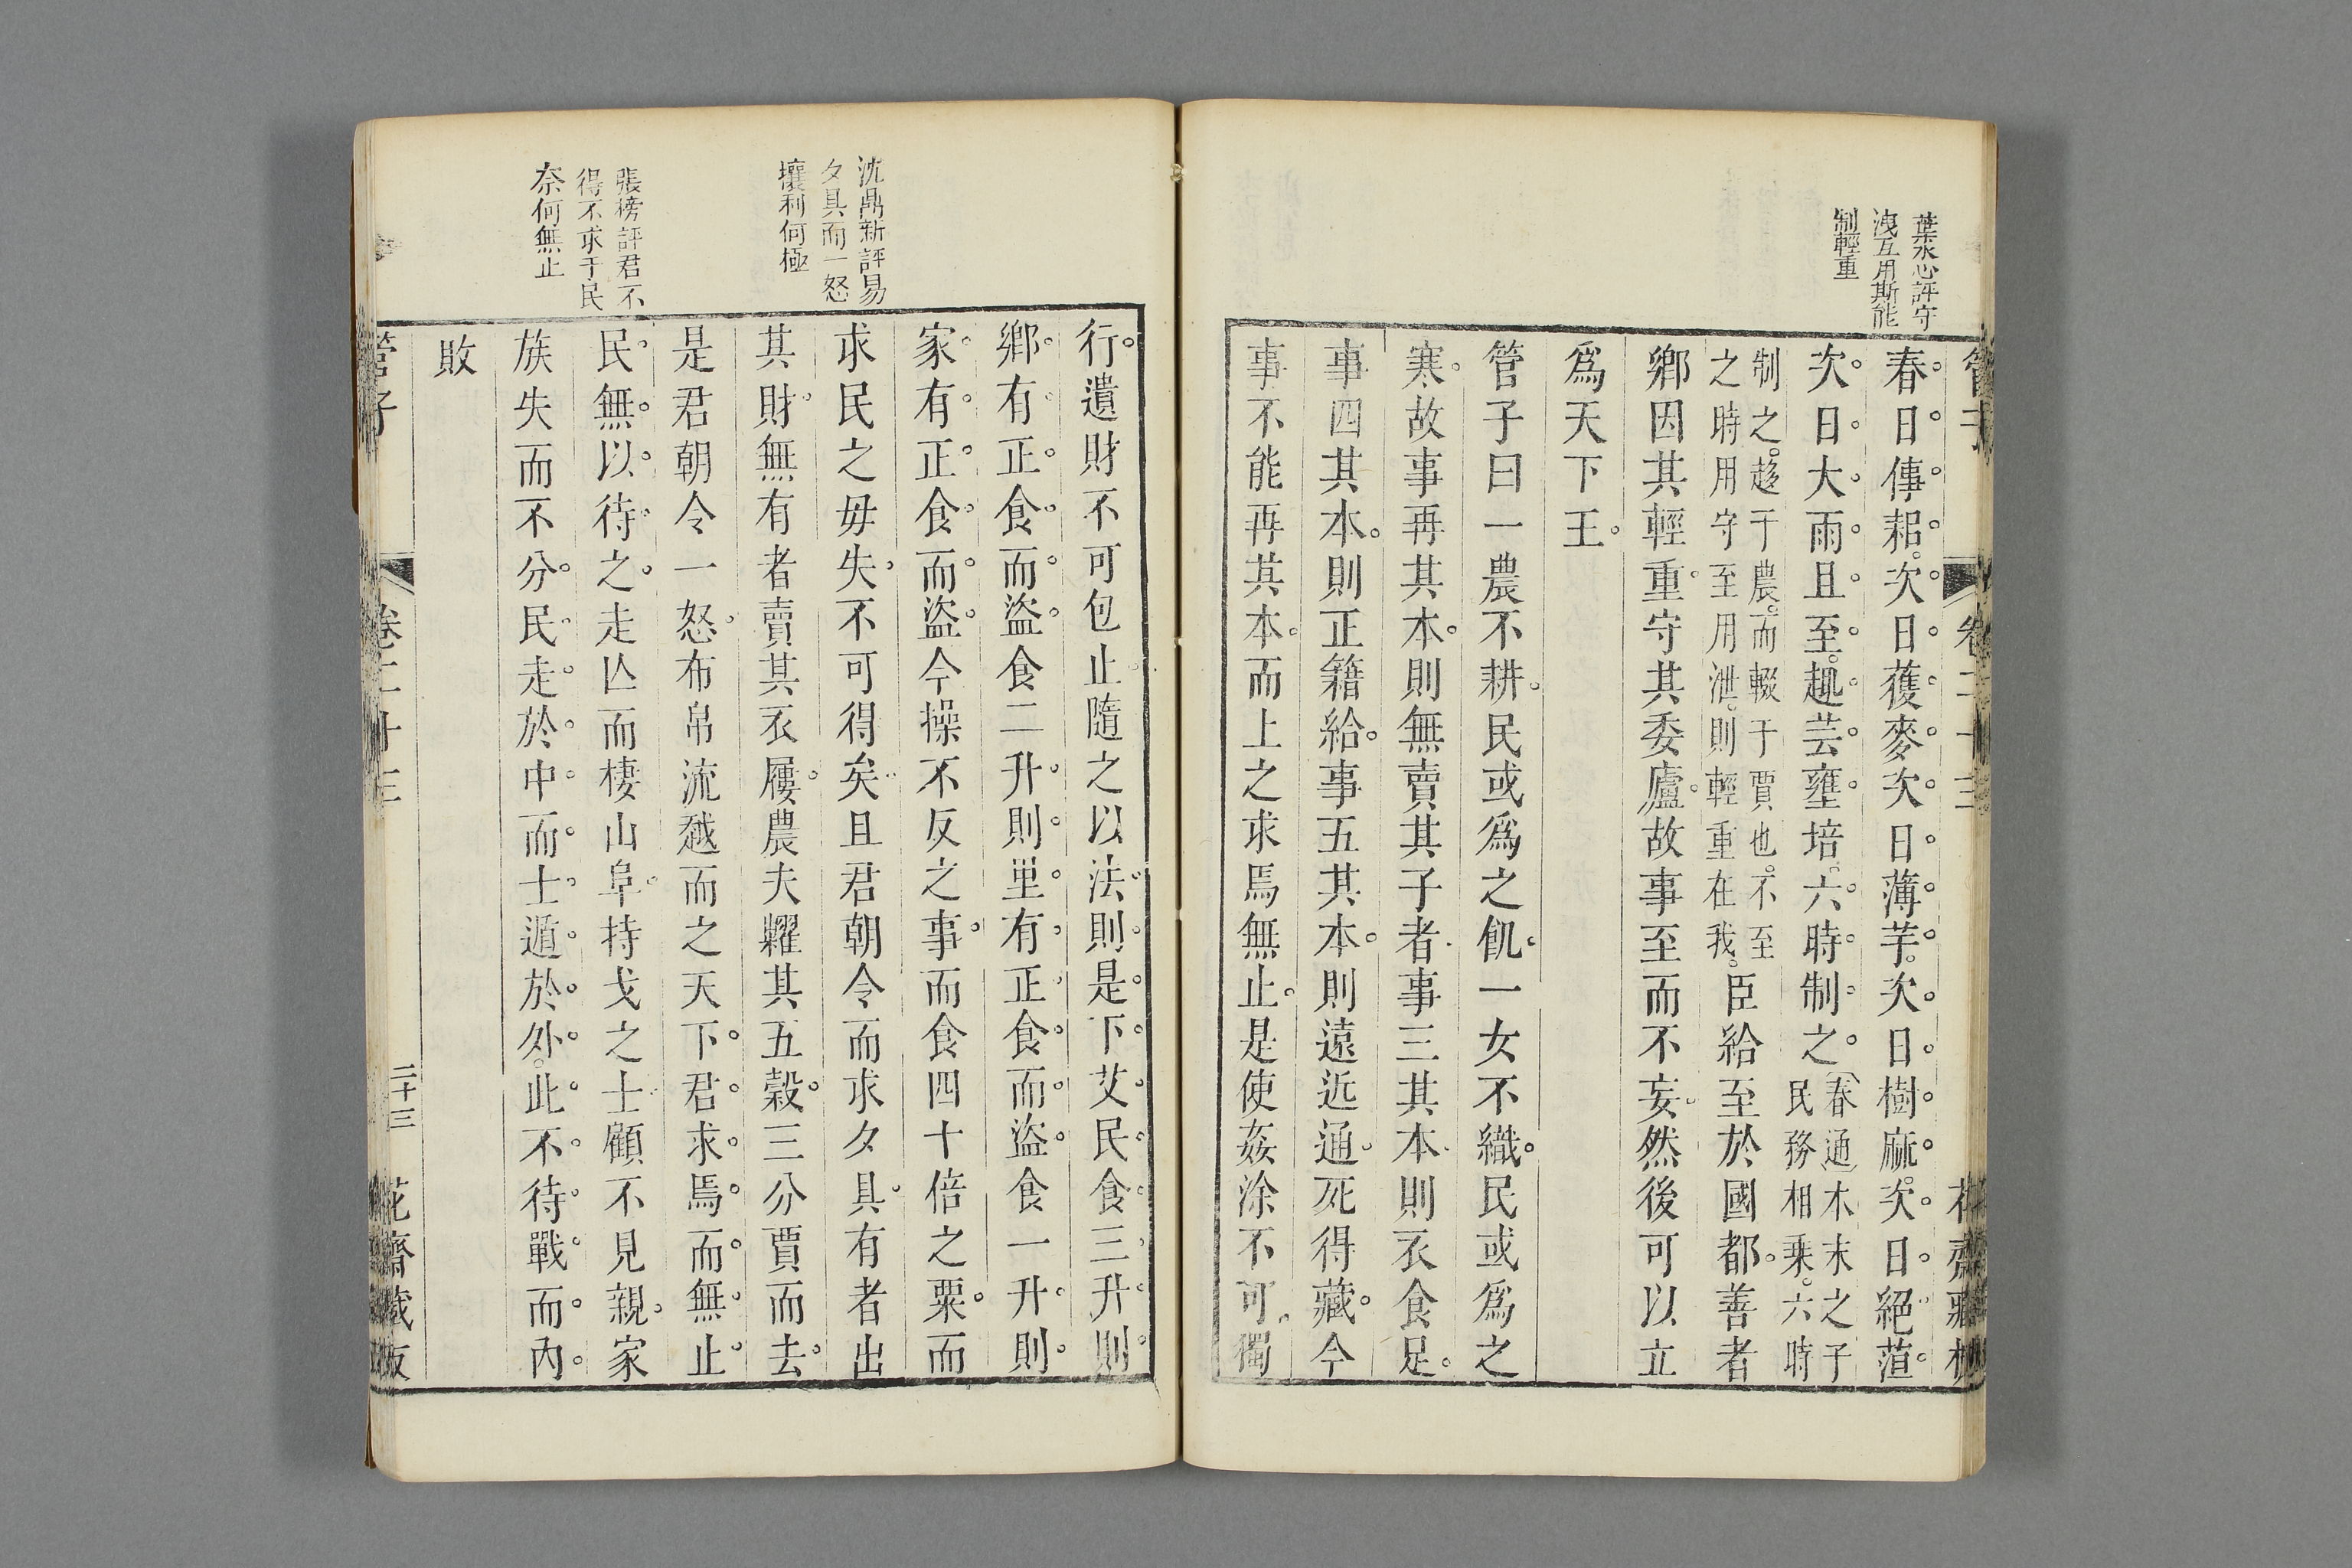 葉水心評守
洩互用斯能
制輕重
春日傳耜次日獲麥次日薄芋次日樹麻次日絕菹
次日大雨且至趣芸壅培六時制之春通木末之子
民務相乗六時
制之趍于農而輟于賈也不至
之時用守至用泄則輕重在我臣給至於國都善者
鄉因其輕重守其委廬故事至而不妄然後可以立
爲天下王
管子曰一農不耕民或爲之飢一女不織民或爲之
寒故事再其本則無賣其子者事三其本則衣食足
事四其本則正籍給事五其本則遠近通死得藏今
事不能再其本而上之求焉無止是使姦涂不可獨
沈鼎新評易
夕具而一怒
壤利何極
張榜評君不
得不求于民
奈何無止
行遺財不可包止隨之以法則是下艾民食三升則
鄉有正食而盜食二升則里有正食而盜食一升則
家有正食而盜今操不反之事而食四十倍之粟而
求民之毋失不可得矣且君朝令而求夕具有者出
其財無有者賣其衣屨農夫糶其五穀三分賈而去
是君朝令一怒布帛流越而之天下君求焉而無止
民無以待之走亾而棲山阜持戈之士顧不見親家
族失而不分民走於中而士遁於外此不待戰而內
敗
管子
卷二十三
二十三
花齋藏板